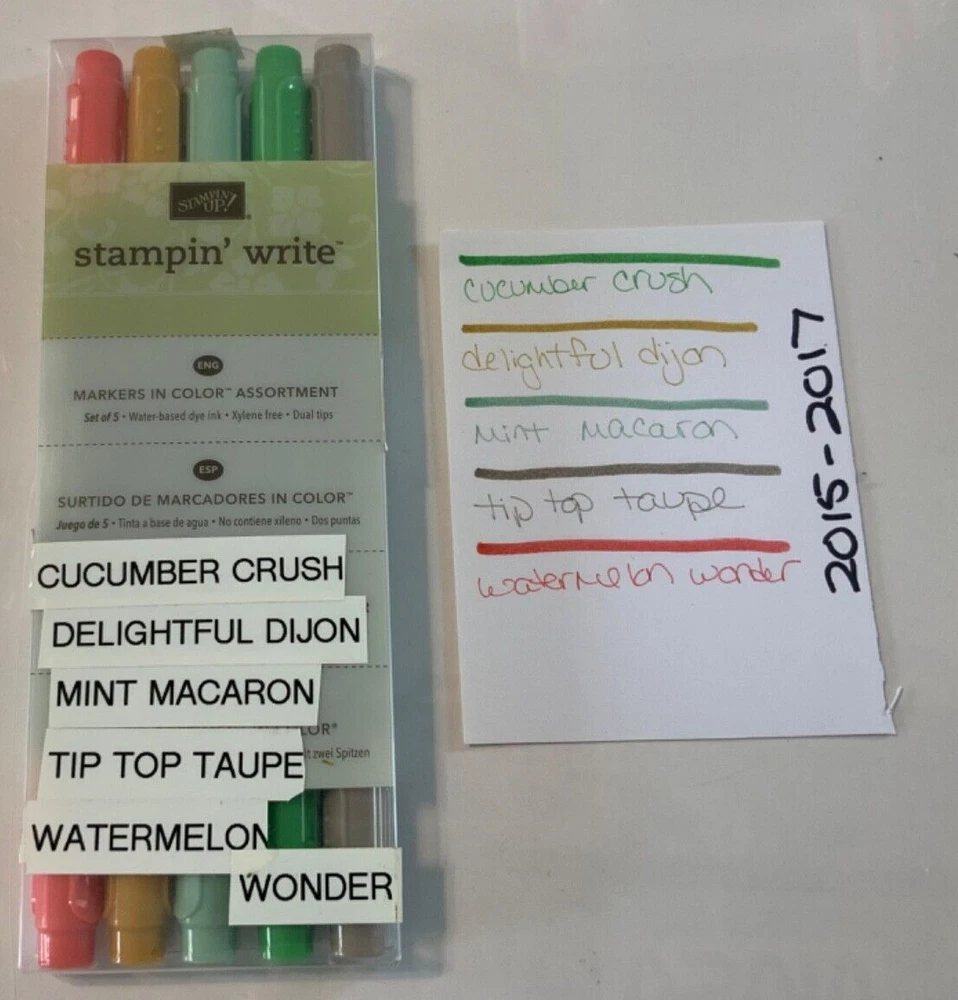 STAMPIN' UP!®
stampin' write™
ENG
MARKERS IN COLOR™ ASSORTMENT
Set of 5 • Water-based dye ink • Xylene free • Dual tips
ESP
SURTIDO DE MARCADORES IN COLOR™
Juego de 5 • Tinta a base de agua • No contiene xileno • Dos puntas
CUCUMBER CRUSH
DELIGHTFUL DIJON
MINT MACARON
TIP TOP TAUPE
zwei Spitzen
WATERMELON
WONDER
cucumber crush
delightful dijon
mint macaron
tip top taupe
watermelon wonder
2015-2017